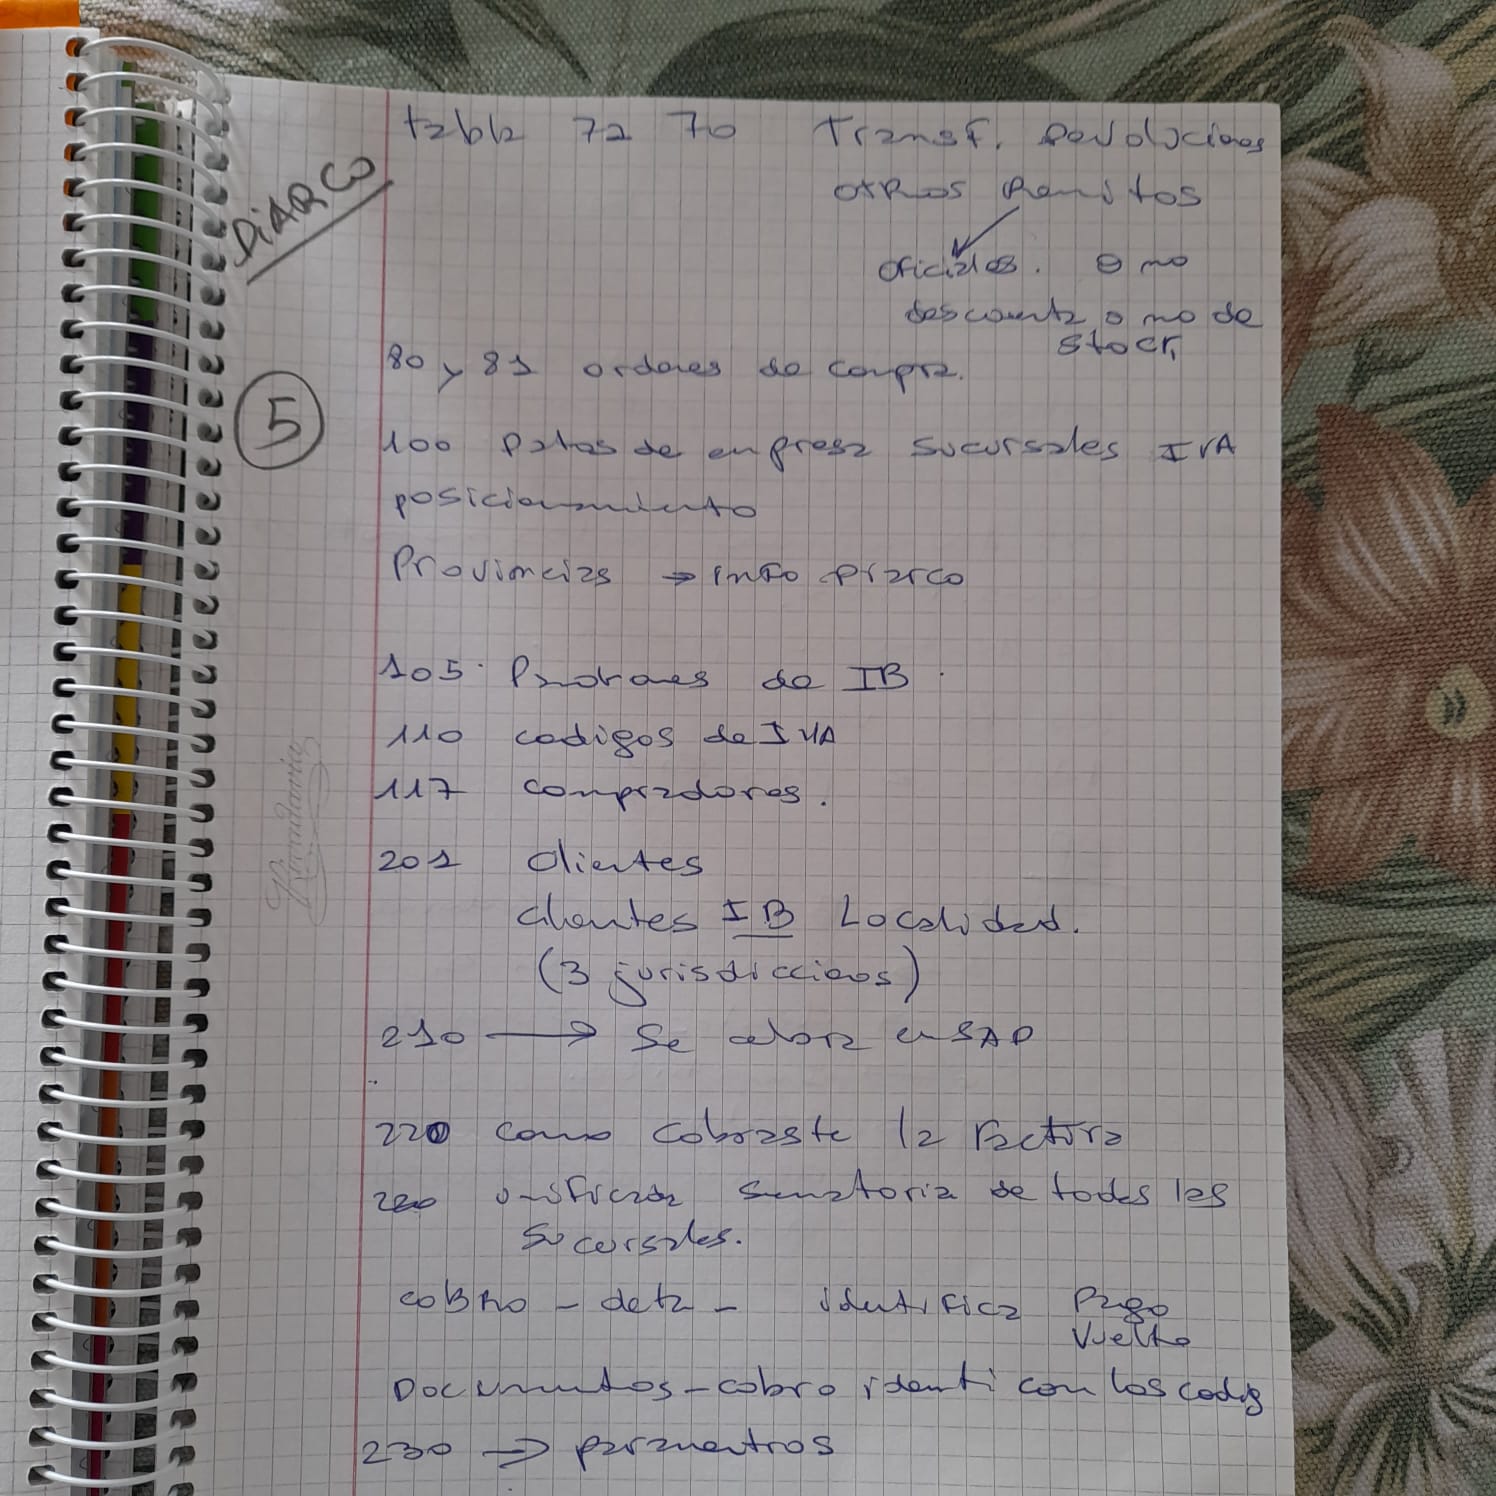 DiARCO
5
tabla 72 70 Transf. Devoluciones
otros Remitos
oficiales. o no
descuenta o no de
stock
80 y 81 ordenes de compra.
100 Datos de empresa sucursales IVA
posicionamiento
Provincias → info Diarco
105 Padrones de IB
110 codigos de IVA
117 compradores.
201 clientes
clientes IB Localidad.
(3 jurisdicciones)
210 → Se en SAP
220 como cobraste la factura
unificada sumatoria de todas las
sucursales.
COBRO - deta - identifica Pago
Vuelto
Documentos - cobro identi con los codig
230 → parametros
Rivadavia